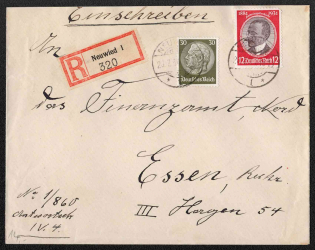 Einschreiben
An
R
Neuwied 1
320
30
Deutsches Reich
1884 1934
12 Deutsches Reich 12
das Finanzamt Nord
Essen, Ruhr.
III Hagen 54
No 1/860
IV. 4.